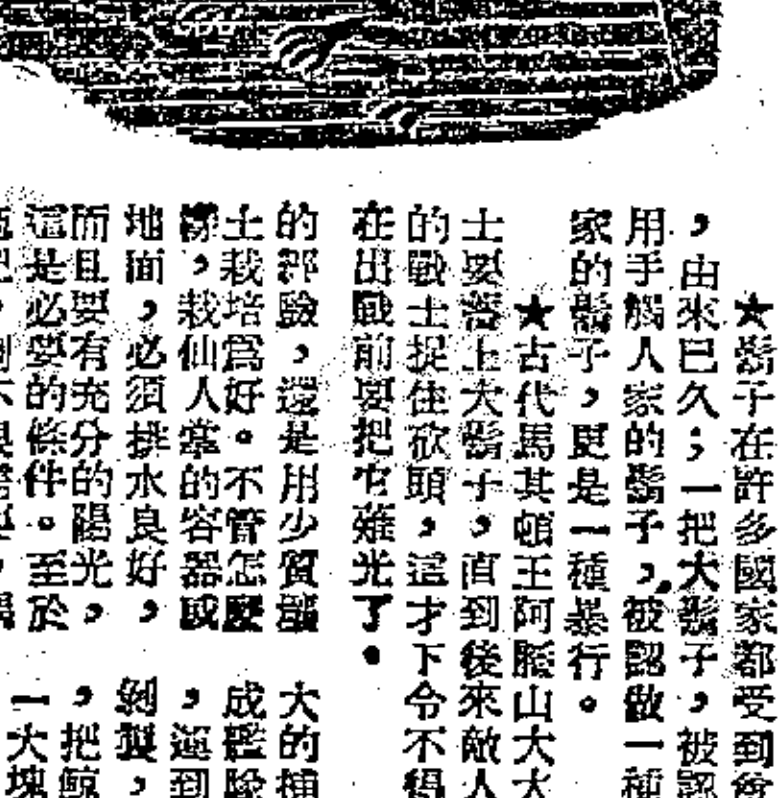 ★鬍子在許多國家都受到
，由來已久；一把大鬍子，被認
用手觸人家的鬍子，被認做一種
家的鬍子，更是一種暴行。
★古代馬其頓王阿歷山大大
士要蓄上大鬍子，直到後來敵人
的戰士捉住砍頭，這才下令不得
在出戰前要把它薙光了。
的經驗，還是用少質
土栽培爲好。不管怎麼
，栽仙人掌的容器或
地面，必須排水良好，
而且要有充分的陽光，
這是必要的條件。至於
大的捕
成
，運到
剝製，
，把鯨
一大塊